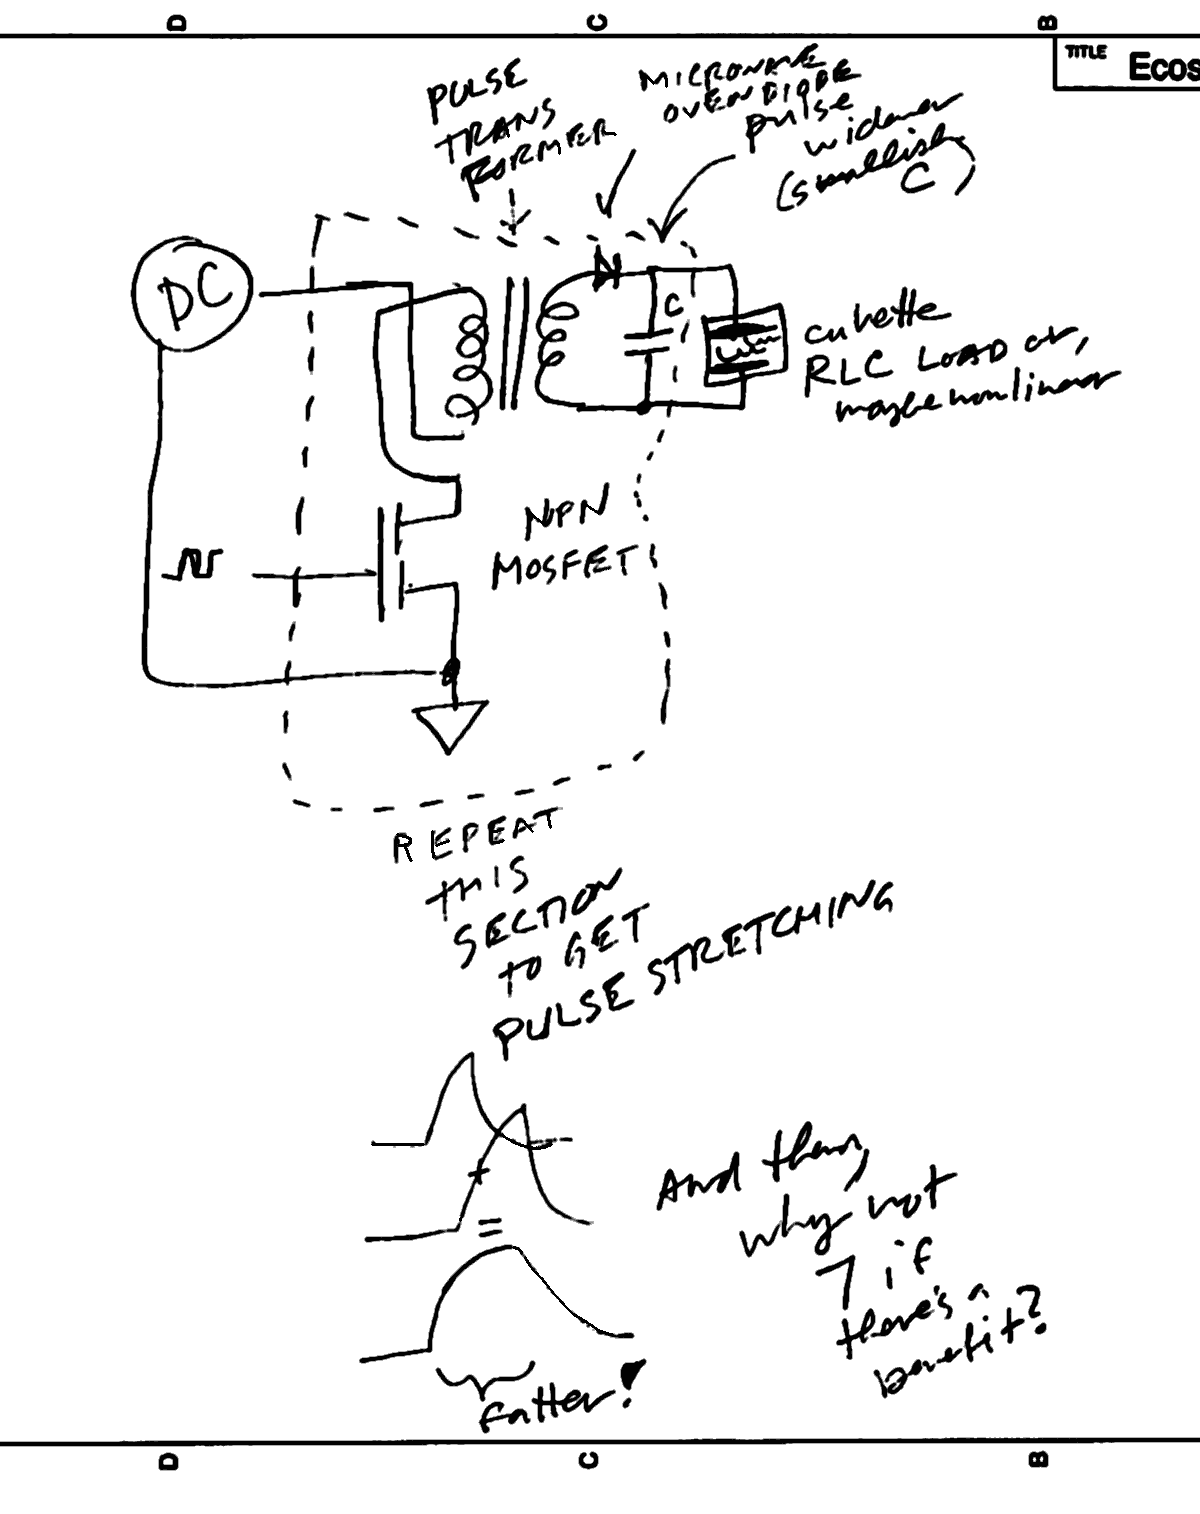 D
C
B
TITLE
Ecos
PULSE
TRANS
FORMER
MICROWAVE
OVEN DIODE
pulse
widener
(smallish
C)
DC
C
cuvette
RLC LOAD or,
maybe nonlinear
NPN
MOSFET
REPEAT
THIS
SECTION
TO GET
PULSE STRETCHING
+
=
fatter!
And then,
why not
7 if
there's a
benefit?
D
C
B